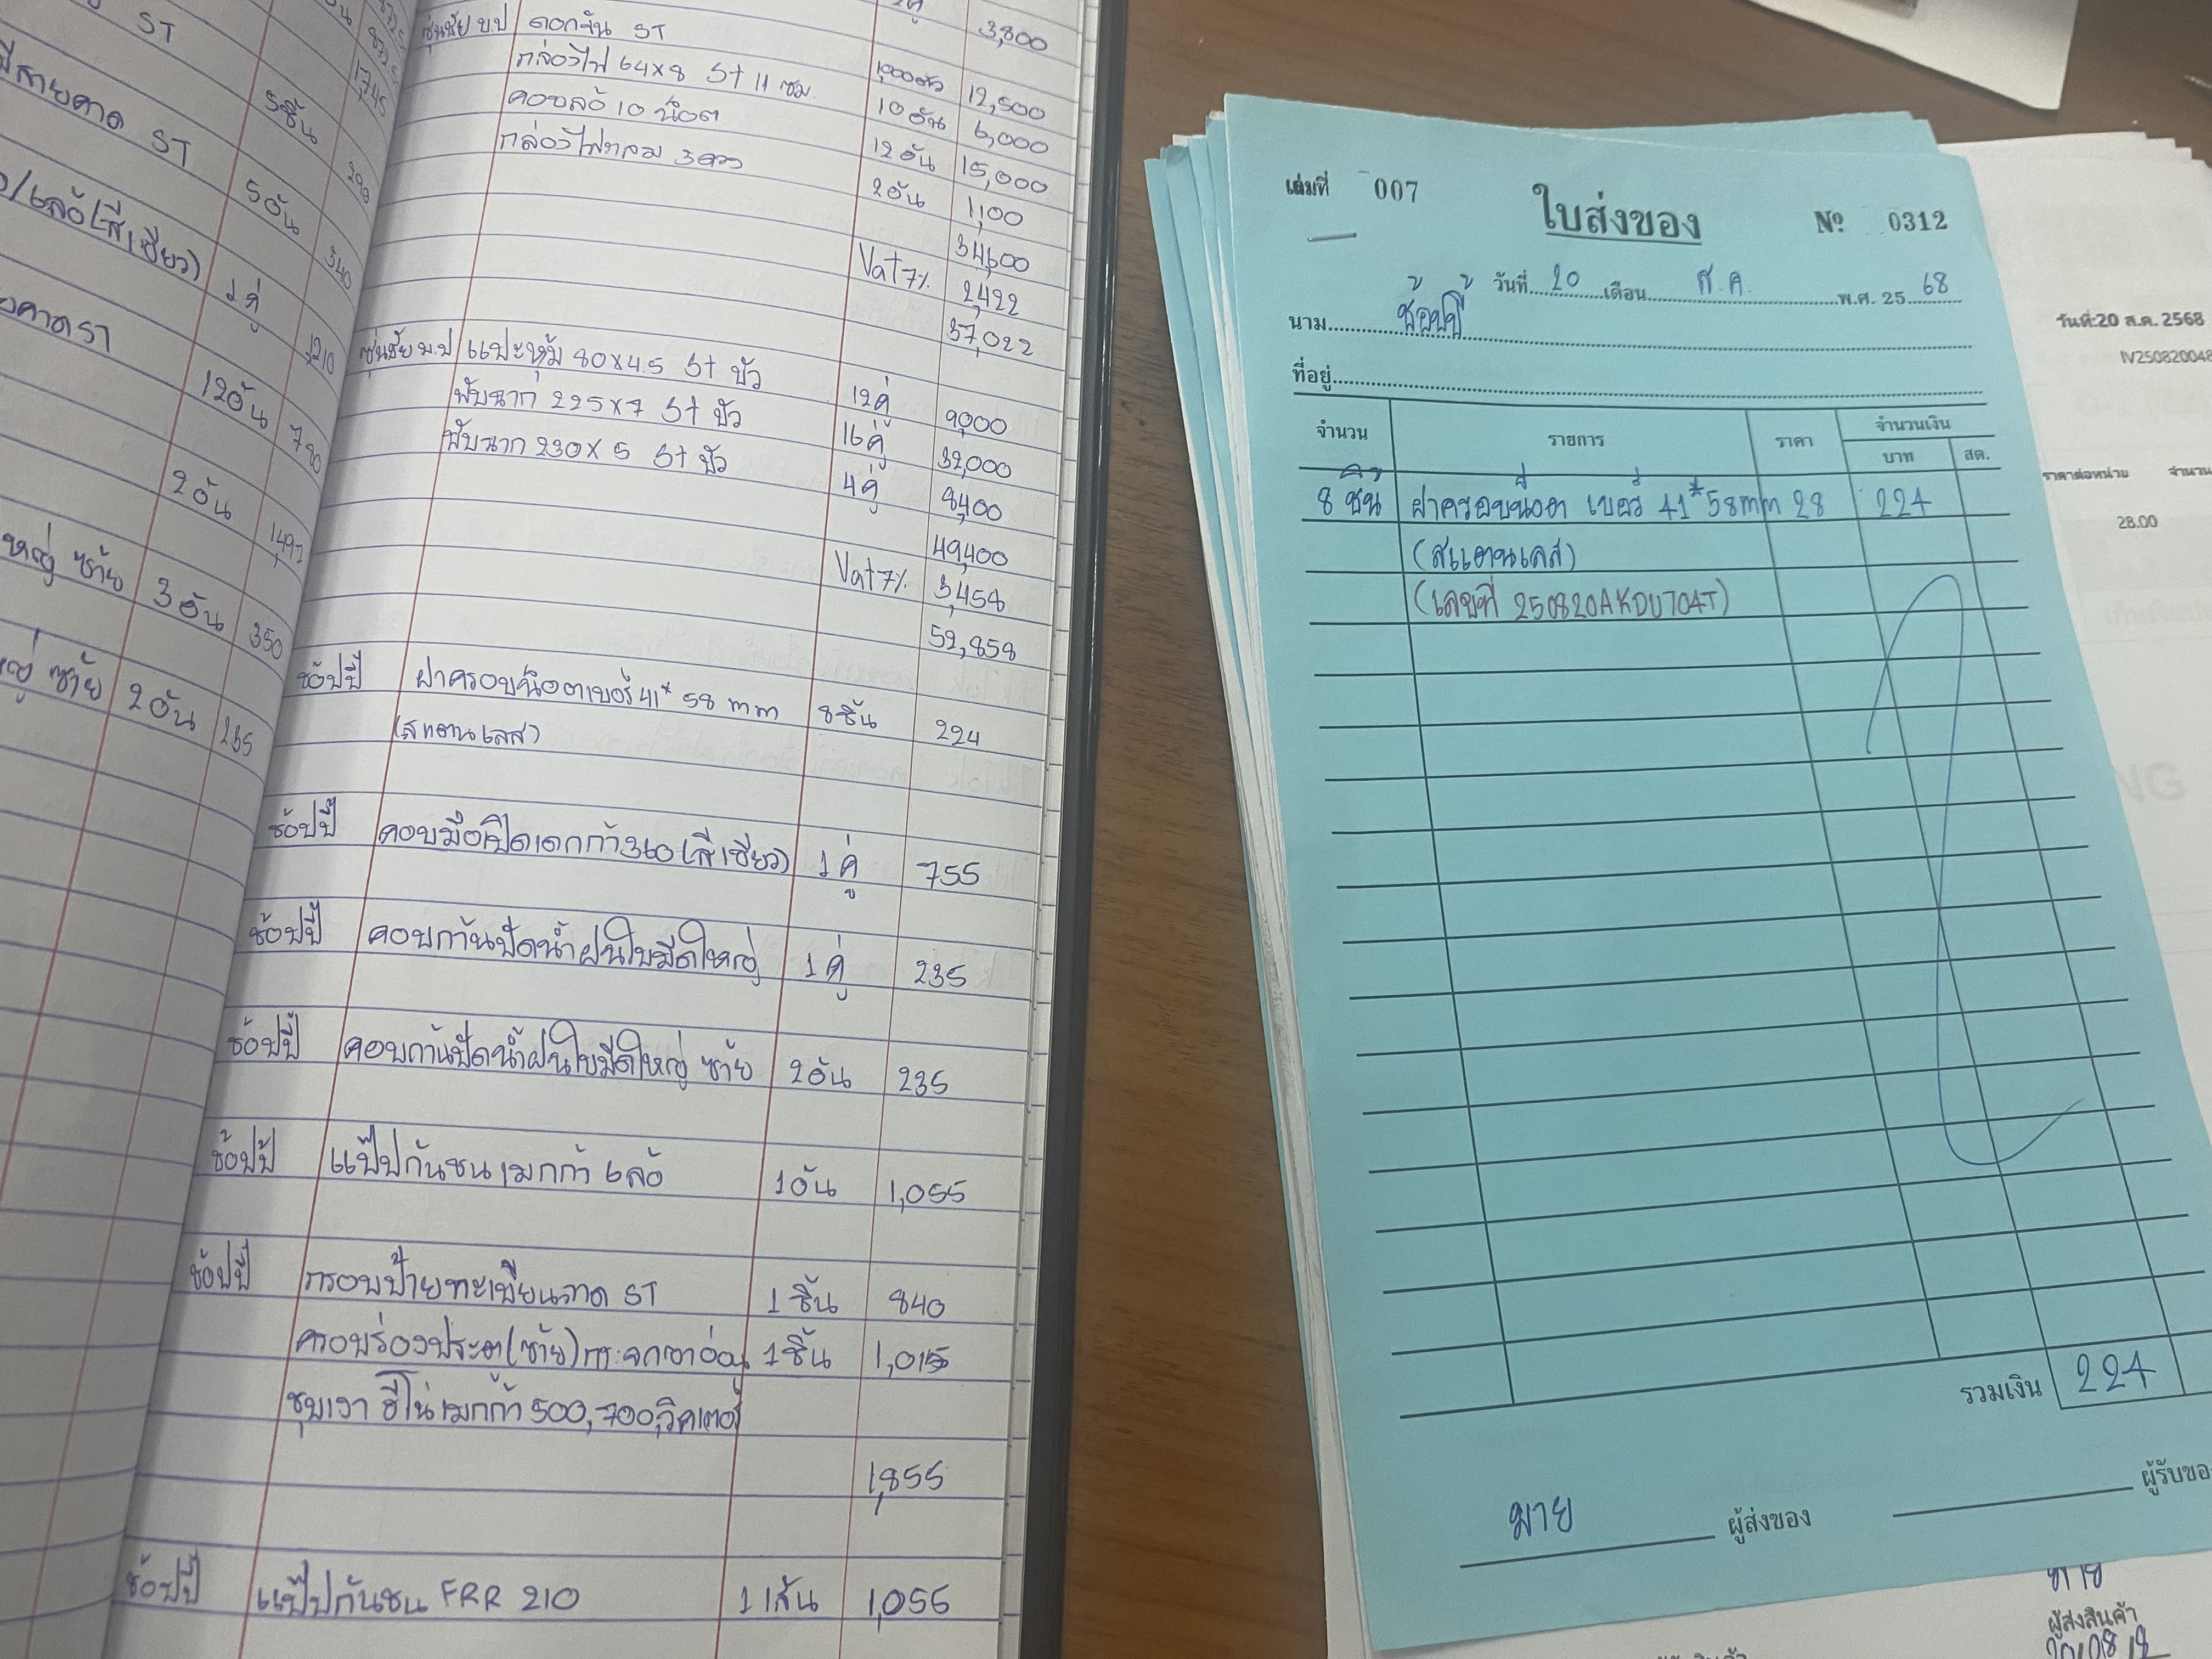 ST
5ชิ้น
290
มีสายคาด ST
5อัน
340
1 คู่
1210
12อัน
780
2อัน
1,492
ใหญ่ ซ้าย
3อัน
350
ซ้าย
2อัน
235
1,745
3,800
ซุ่นชัย บ.ป ดอกจัน ST 1,000ตัว 12,500
กล่องไฟ 64×8 St 11 ซม. 10 อัน 6,000
ครอบล้อ 10 น็อต 12 อัน 15,000
กล่องไฟกลม 3ดวง 2อัน 1,100
34,600
Vat7% 2,422
37,022
ซุ่นชัย บ.ป แปะหุ้ม 80×4.5 St บัว 12คู่ 9,000
พับฉาก 225×7 St บัว 16คู่ 32,000
พับฉาก 230×5 St บัว 4คู่ 8,400
49,400
Vat7% 3,458
52,858
ช้อปปี้ ฝาครอบน็อตเบอร์41* 58 mm 8ชิ้น 224
(สแตนเลส)
ช้อปปี้ ครอบมือเปิดเดกก้า360(สีเขียว) 1 คู่ 755
ช้อปปี้ ครอบก้านปัดน้ำฝนใบมีดใหญ่ 1 คู่ 235
ช้อปปี้ ครอบก้านปัดน้ำฝนใบมีดใหญ่ ซ้าย 2อัน 235
ช้อปปี้ แป๊ปกันชน เมกก้า 6ล้อ 1อัน 1,055
ช้อปปี้ กรอบป้ายทะเบียนถาด ST 1 ชิ้น 840
ครอบร่องประตู(ซ้าย) 1ชิ้น 1,015
ชุบเงา ฮีโน่เมกก้า 500,700,วิคเตอร์
1,855
ช้อปปี้ แป๊ปกันชน FRR 210 1 เส้น 1,055
เล่มที่ 007
ใบส่งของ
Nº 0312
วันที่ 20 เดือน ส.ค. พ.ศ. 25 68
นาม ช้อปปี้
ที่อยู่
จำนวน รายการ ราคา จำนวนเงิน
บาท สต.
8 ชิ้น ฝาครอบน็อต เบอร์ 41*58mm 28 224
(สแตนเลส)
(เลขที่ 250820AKDUT04T)
รวมเงิน 224
มาย ผู้ส่งของ
ผู้รับขอ
วันที่:20 ส.ค. 2568
IV250820048
ราคาต่อหน่วย จำนวน
28.00
ผู้ส่งสินค้า